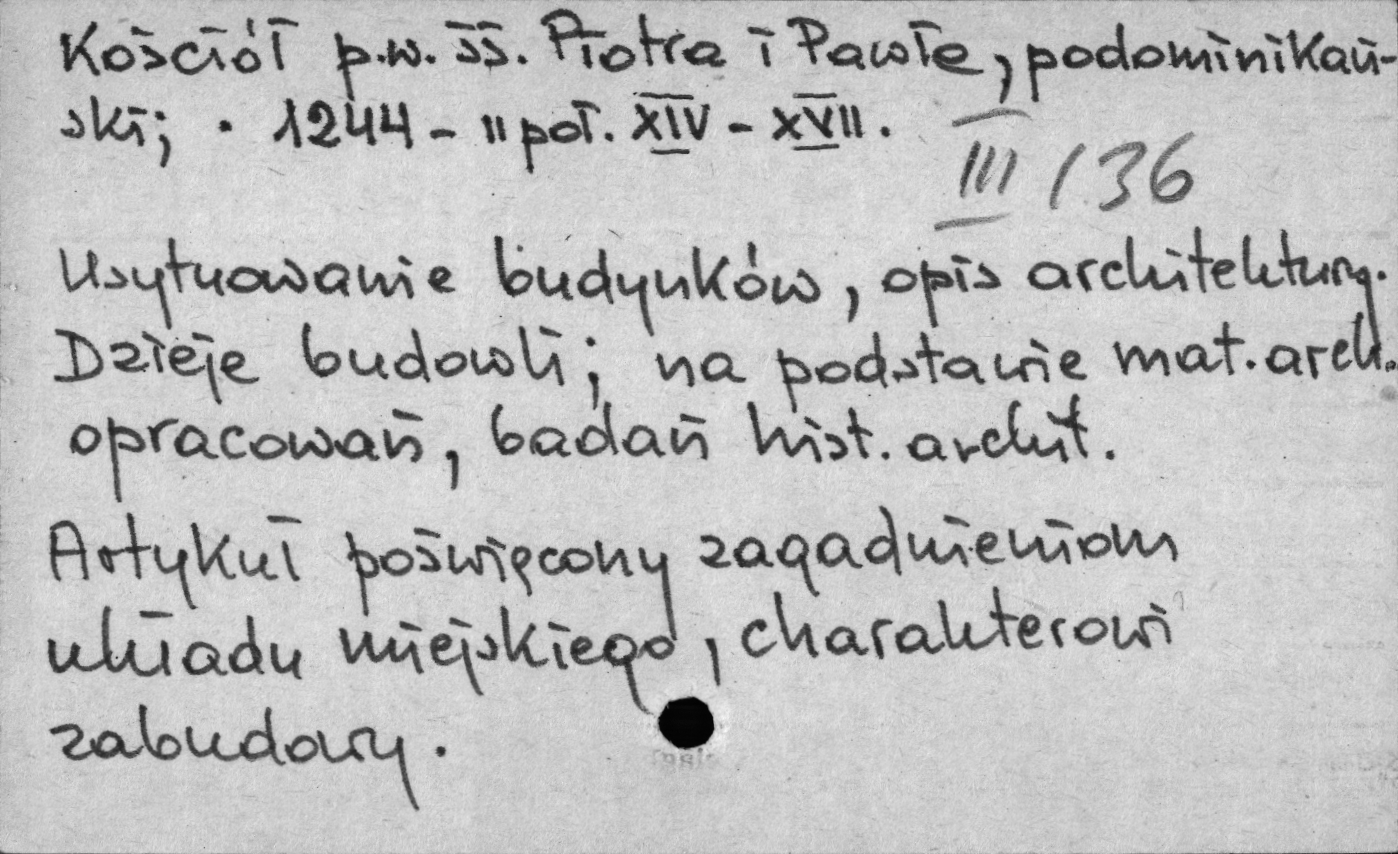 Kościół p.w. śś. Piotra i Pawła, podominikań-
ski; · 1244 - II poł. XIV - XVII.
III / 36
Usytuowanie budynków, opis architektury.
Dzieje budowli; na podstawie mat. arch.
opracowań, badań hist. archit.
Artykuł poświęcony zagadnieniom
układu miejskiego, charakterowi
zabudowy.